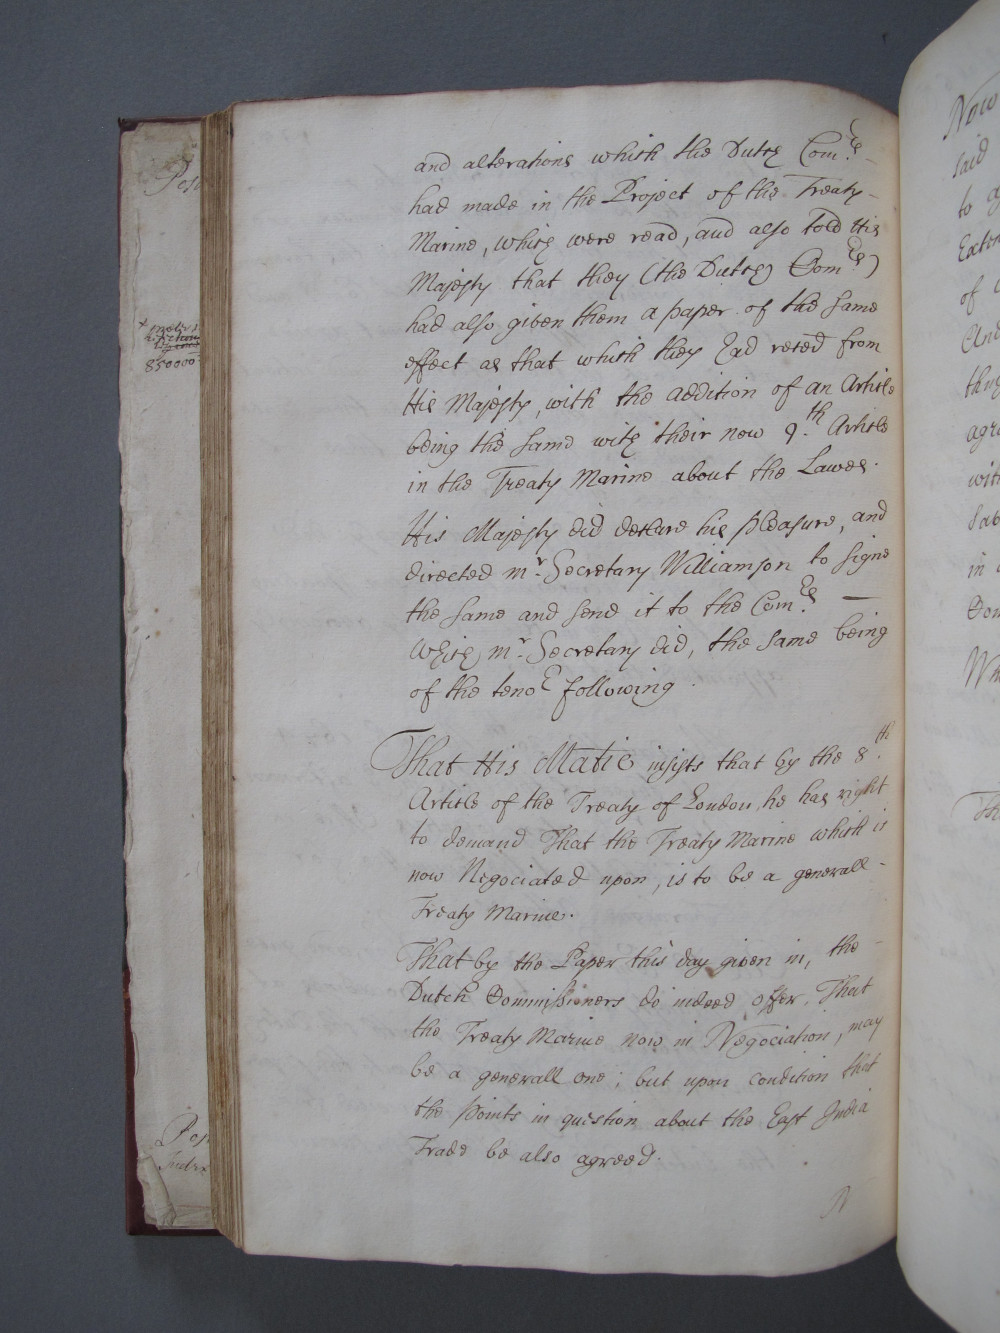 and alterations which the Dutch Com:rs
had made in the Project of the Treaty
Marine, which were read, and also told His
Majesty that they (the Dutch Com:rs)
had also given them a paper of the same
effect as that which they had reced from
His Majesty, with the addition of an Article
being the same with their now 9.th Article
in the Treaty Marine about the Lawes.
His Majesty did declare his pleasure, and
directed mr. Secretary Williamson to signe
the same and send it to the Com:rs —
Which mr. Secretary did, the same being
of the tenor following.
That His Matie insists that by the 8.th
Article of the Treaty of London, he has right
to demand That the Treaty Marine which is
now Negociated upon, is to be a generall -
Treaty Marine.
That by the Paper this day given in, the -
Dutch Commissioners do indeed offer, That
the Treaty Marine now in Negociation, may
be a generall one; but upon condition that
the points in question about the East India
Trade be also agreed.
N
850000
Now
said
to
of
with
in